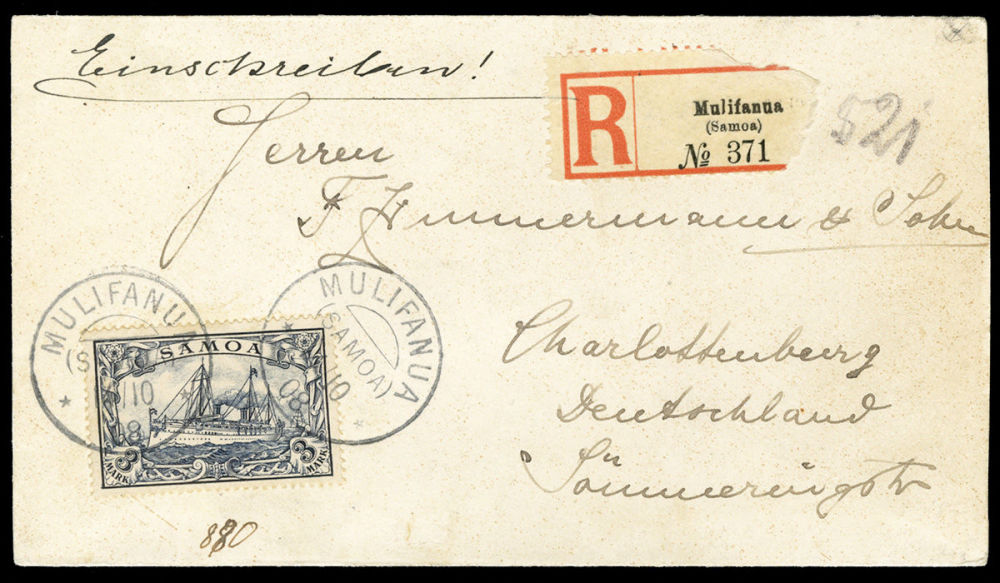 Einschreiben!
R
Mulifanua
(Samoa)
№ 371
521
Herren
F. Zimmermann & Sohn
MULIFANUA
(SAMOA)
/10
08
MULIFANUA
/10
8
SAMOA
3 MARK
3 MARK
Charlottenburg
Deutschland
Sömmeringstr
880